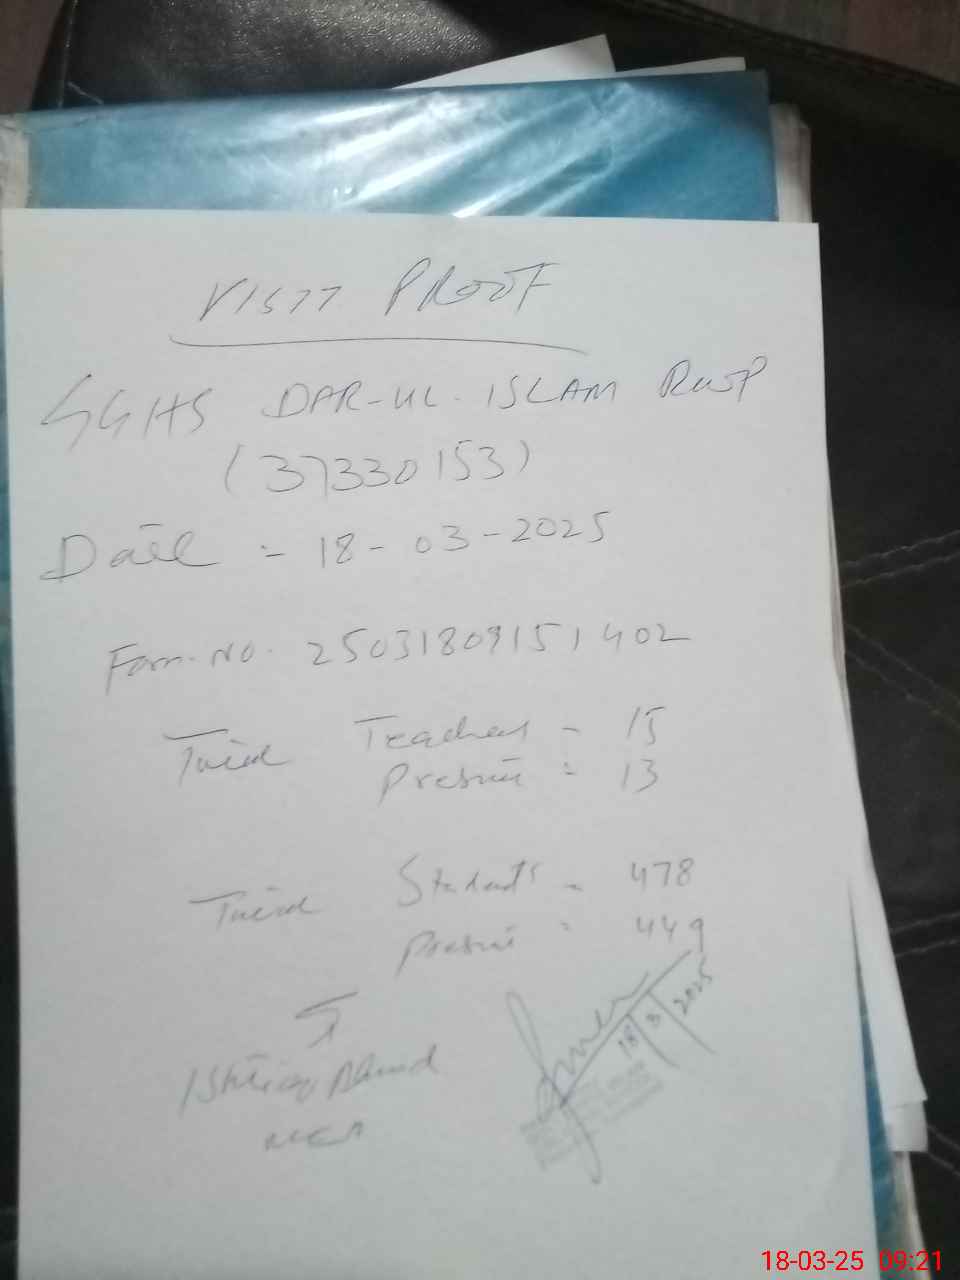 VISIT PROOF
GGHS DAR-UL-ISLAM RWP
(37330153)
Date :- 18-03-2025
Form.No. 25031809151402
Total Teachers - 15
Present = 13
Total Students - 478
Present = 449
Ishtiaq Ahmed
MEA
18/3/2025
18-03-25 09:21